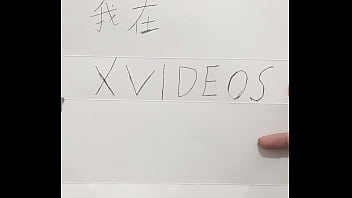 我在
XVIDEOS